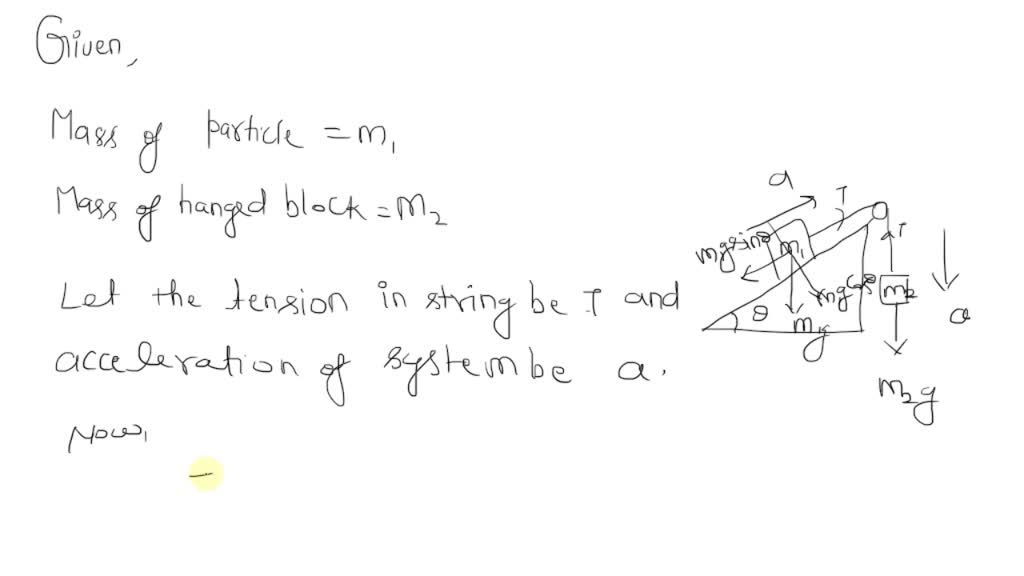 Given,
Mass of particle = m₁
Mass of hanged block = M₂
Let the tension in string be T and
acceleration of system be a.
Now,
a
T
T
m₁
mgcosθ
m₂
θ
a
m₂g